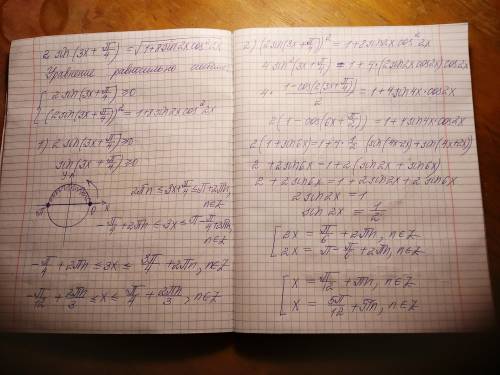 2 sin (3x + π/4) = √(1+8 sin 2x cos² 2x)
Уравнение равносильно системе:
{ 2 sin (3x + π/4) ≥ 0
{ (2 sin (3x + π/4))² = 1+8 sin 2x cos² 2x
1) 2 sin (3x + π/4) ≥ 0
sin (3x + π/4) ≥ 0
y
π 0 x
2πn ≤ 3x + π/4 ≤ π + 2πn, n∈Z
-π/4 + 2πn ≤ 3x ≤ π - π/4 + 2πn, n∈Z
-π/4 + 2πn ≤ 3x ≤ 3π/4 + 2πn, n∈Z
-π/12 + 2πn/3 ≤ x ≤ π/4 + 2πn/3, n∈Z
2) (2 sin (3x + π/4))² = 1+8 sin 2x cos² 2x
4 sin² (3x + π/4) = 1 + 4·(2 sin 2x cos 2x) cos 2x
4 · (1 - cos (2(3x + π/4)))/2 = 1 + 4 sin 4x · cos 2x
2 (1 - cos (6x + π/2)) = 1 + 4 sin 4x · cos 2x
2 (1 + sin 6x) = 1 + 4 · 1/2 (sin (4x-2x) + sin (4x+2x))
2 + 2 sin 6x = 1 + 2 (sin 2x + sin 6x)
2 + 2 sin 6x = 1 + 2 sin 2x + 2 sin 6x
2 sin 2x = 1
sin 2x = 1/2
[ 2x = π/6 + 2πn, n∈Z
[ 2x = π - π/6 + 2πn, n∈Z
[ x = π/12 + πn, n∈Z
[ x = 5π/12 + πn, n∈Z